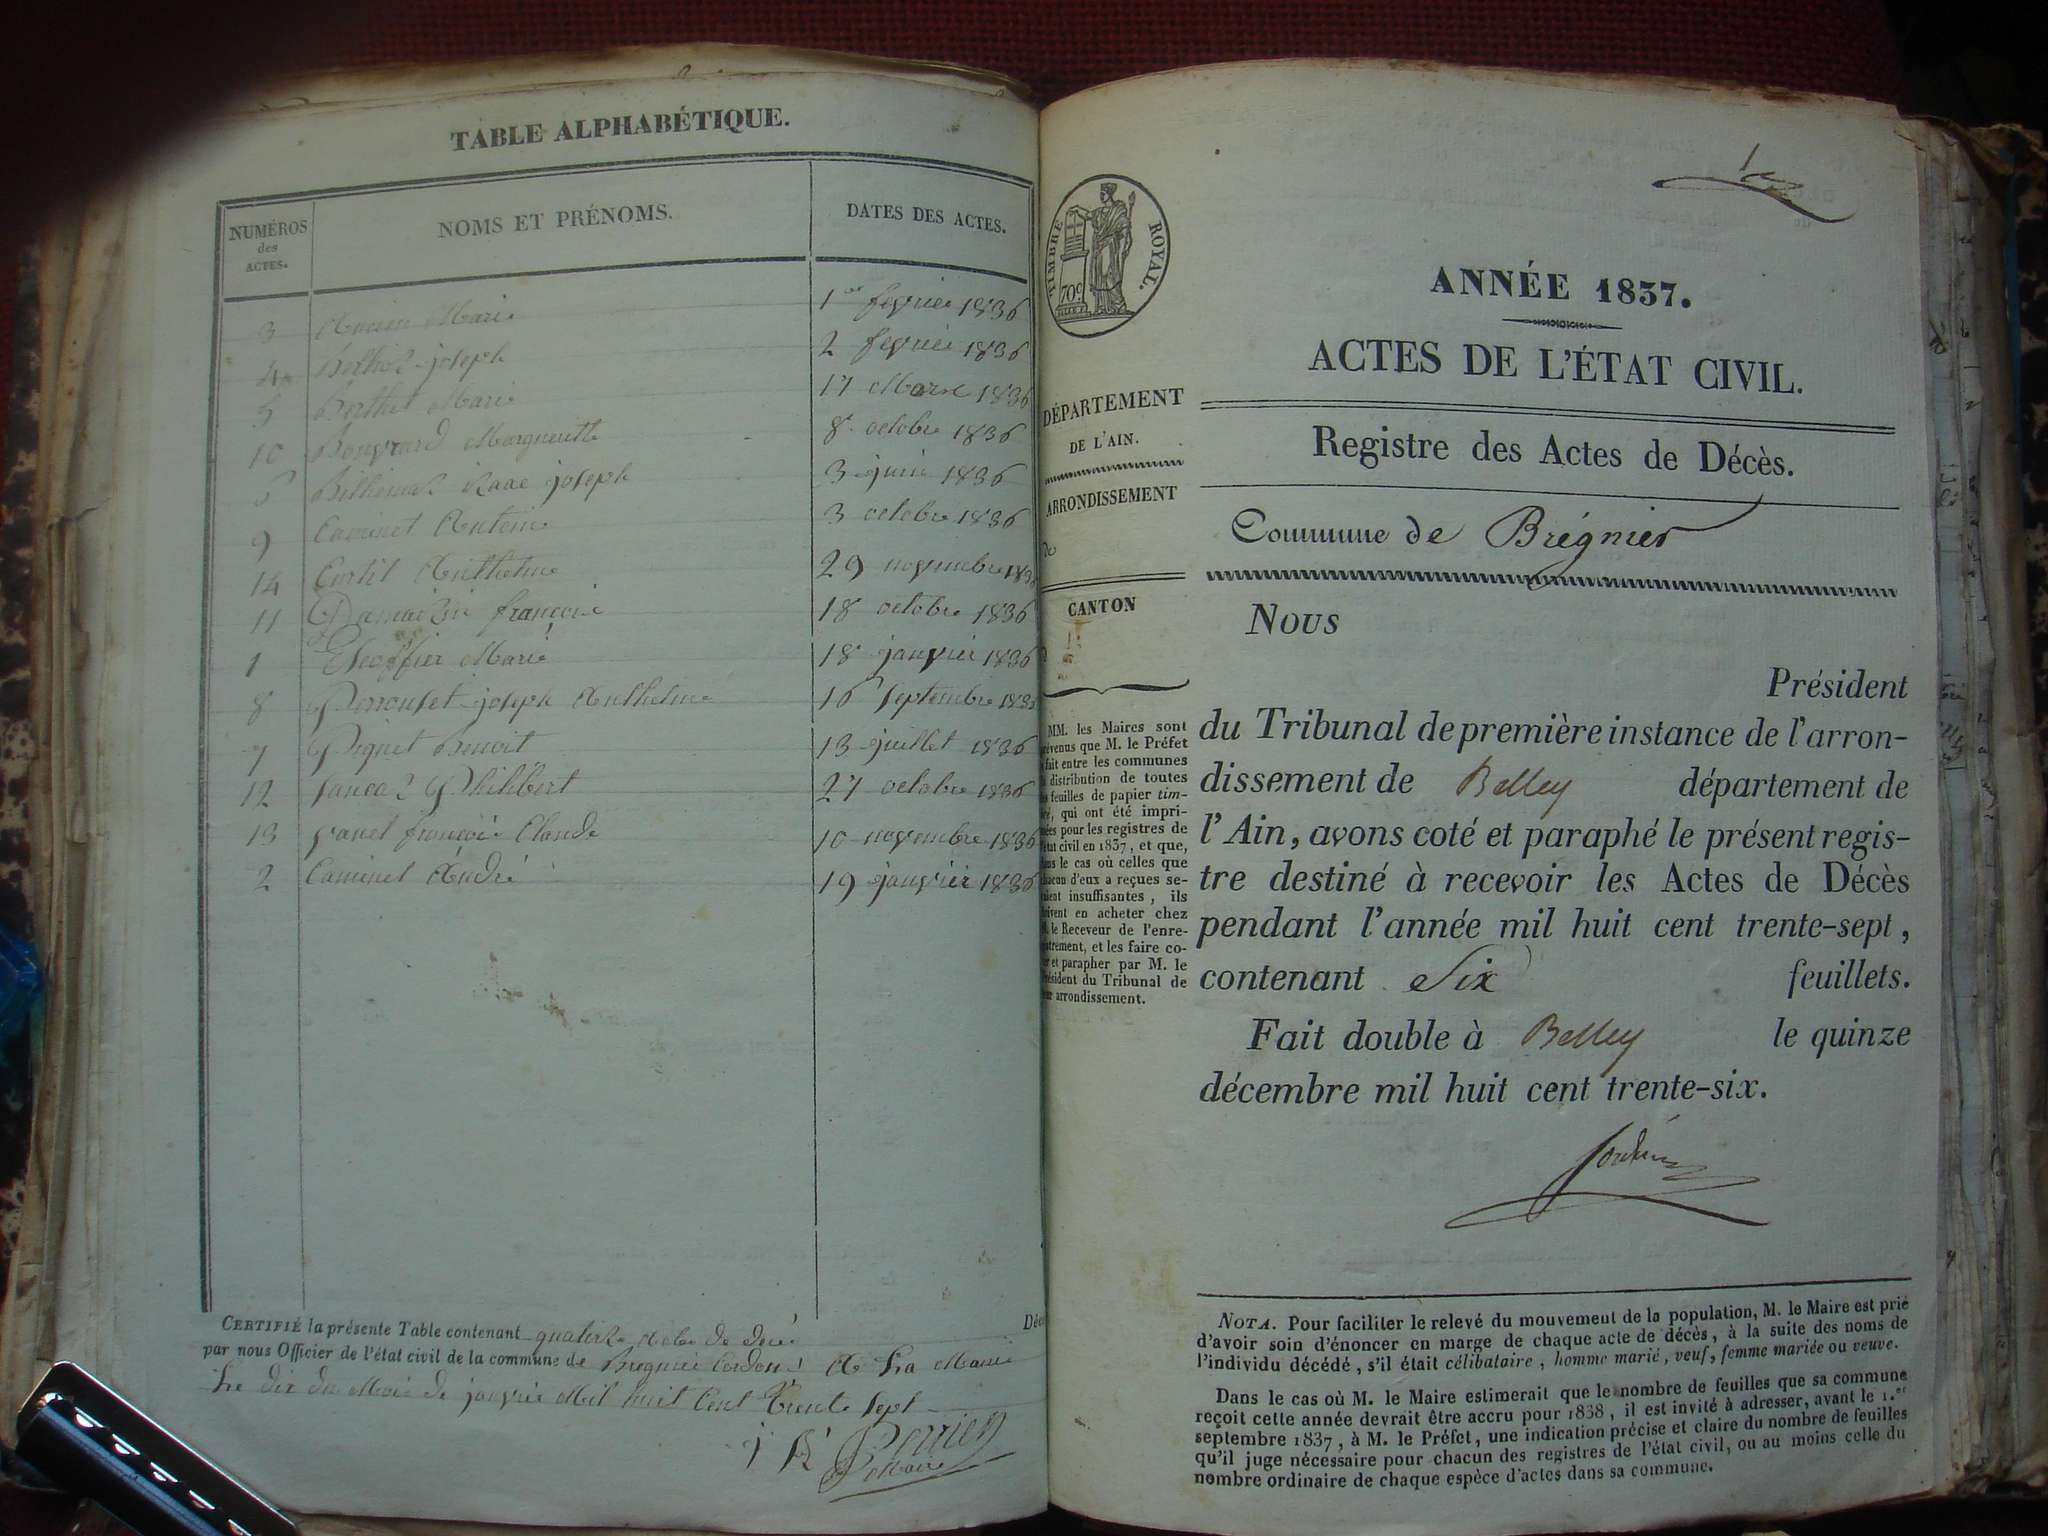 TABLE ALPHABÉTIQUE.
NUMÉROS
des
ACTES.
NOMS ET PRÉNOMS.
DATES DES ACTES.
3 Marie 1er fevrier 1836
4 joseph 2 fevrier 1836
5 Berthet Marie 17 Mars 1836
10 Bouvard Marguerite 8 octobre 1836
joseph 3 juin 1836
9 Caminet Antoine 3 octobre 1836
14 Curtil Anthelme 29 novembre
11 françoise 18 octobre 1836
1 Marie 18 janvier 1836
8 joseph Anthelme 16 septembre
7 Benoit 13 juillet 1836
12 Philibert 27 octobre 1836
13 Claude 10 novembre 1836
2 Caminet André 19 janvier 1836
CERTIFIÉ la présente Table contenant quatorze actes de décès
par nous Officier de l'état civil de la commune de Bregnier Cordon, à La Mairie
Le dix du Mois de janvier Mil huit Cent Trente Sept
Perrien
Maire
TIMBRE ROYAL.
70c
DÉPARTEMENT
DE L'AIN.
ARRONDISSEMENT
de
CANTON
MM. les Maires sont
prévenus que M. le Préfet
fait entre les communes
la distribution de toutes
les feuilles de papier tim-
bré, qui ont été impri-
mées pour les registres de
l'état civil en 1837, et que,
dans le cas où celles que
chacun d'eux a reçues se-
raient insuffisantes, ils
doivent en acheter chez
M. le Receveur de l'enre-
gistrement, et les faire co-
ter et parapher par M. le
Président du Tribunal de
leur arrondissement.
ANNÉE 1837.
ACTES DE L'ÉTAT CIVIL.
Registre des Actes de Décès.
Commune de Brégnier
Nous
Président
du Tribunal de première instance de l'arron-
dissement de Belley département de
l'Ain, avons coté et paraphé le présent regis-
tre destiné à recevoir les Actes de Décès
pendant l'année mil huit cent trente-sept,
contenant Six feuillets.
Fait double à Belley le quinze
décembre mil huit cent trente-six.
NOTA. Pour faciliter le relevé du mouvement de la population, M. le Maire est prié
d'avoir soin d'énoncer en marge de chaque acte de décès, à la suite des noms de
l'individu décédé, s'il était célibataire, homme marié, veuf, femme mariée ou veuve.
Dans le cas où M. le Maire estimerait que le nombre de feuilles que sa commune
reçoit cette année devrait être accru pour 1838, il est invité à adresser, avant le 1.er
septembre 1837, à M. le Préfet, une indication précise et claire du nombre de feuilles
qu'il juge nécessaire pour chacun des registres de l'état civil, ou au moins celle du
nombre ordinaire de chaque espèce d'actes dans sa commune.